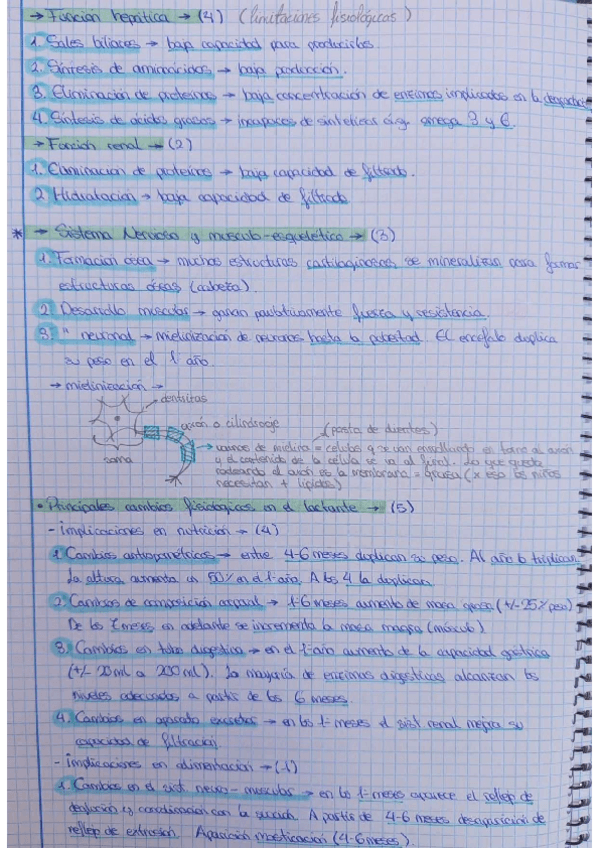 → Función hepática → (4) (limitaciones fisiológicas)
1. Sales biliares → baja capacidad para producirlas.
2. Síntesis de aminoácidos → baja producción.
3. Eliminación de proteínas → baja concentración de enzimas implicados en la
4. Síntesis de ácidos grasos → incapaces de sintetizar omega 3 y 6
→ Función renal → (2)
1. Eliminación de proteínas → baja capacidad de filtrado.
2 Hidratación → baja capacidad de filtrado
* → Sistema Nervioso y musculo-esquelético → (3)
1. Formación ósea → muchas estructuras cartilaginosas se mineralizan para formar
estructuras óseas (cabeza).
2 Desarrollo muscular → ganan paulativamente fuerza y resistencia.
3. " neuronal → mielinización de neuronas hasta la pubertad. El encéfalo duplica
su peso en el 1 año.
→ mielinización →
dentritas
axón o cilindroeje
(pasta de dientes)
soma
→ vainas de mielina = células q se van enrollando en torno al axón
y el contenido de la célula se va al final. Lo que queda
rodeando el axón es la membrana = grasa (x eso los niños
necesitan + lípidos)
• Principales cambios fisiológicos en el lactante → (5)
- implicaciones en nutrición → (4)
1. Cambios antropométricos → entre 4-6 meses duplican su peso. Al año lo triplican.
La altura aumenta un 50% en el 1 año. A los 4 la duplican.
2. Cambios de composición corporal → 1-6 meses aumento de masa grasa (+/- 25% peso)
De los meses en adelante se incrementa la masa magra (músculo)
3. Cambios en tubo digestivo → en el 1 año aumento de la capacidad gástrica
(+/- 20 ml a 200 ml). La mayoría de enzimas digestivas alcanzan los
niveles adecuados a partir de los 6 meses.
4. Cambios en aparato excretor → en los 1 meses el sist. renal mejora su
capacidad de filtración.
- implicaciones en alimentación → (1)
1. Cambios en el sist. neuro-muscular → en los 1 meses aparece el reflejo de
deglución y coordinación con la succión. A partir de 4-6 meses desaparición de
reflejo de extrusión. Aparición masticación (4-6 meses).